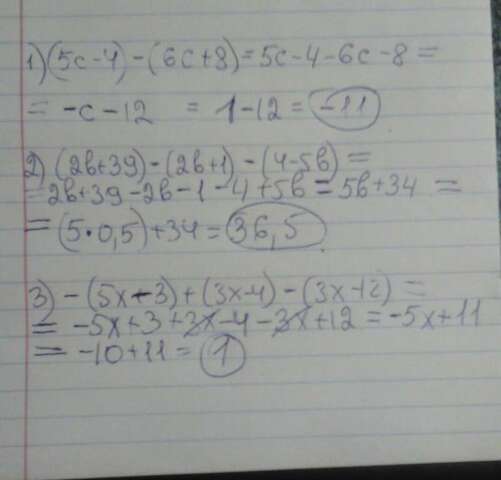 1) (5c-4)-(6c+8)=5c-4-6c-8=
= -c-12 = 1-12= -11
2) (2b+39)-(2b+1)-(4-5b)=
=2b+39-2b-1-4+5b=5b+34 =
= (5•0,5)+34= 36,5
3) -(5x-3)+(3x-4)-(3x-12)=
= -5x+3+3x-4-3x+12=-5x+11
= -10+11= 1